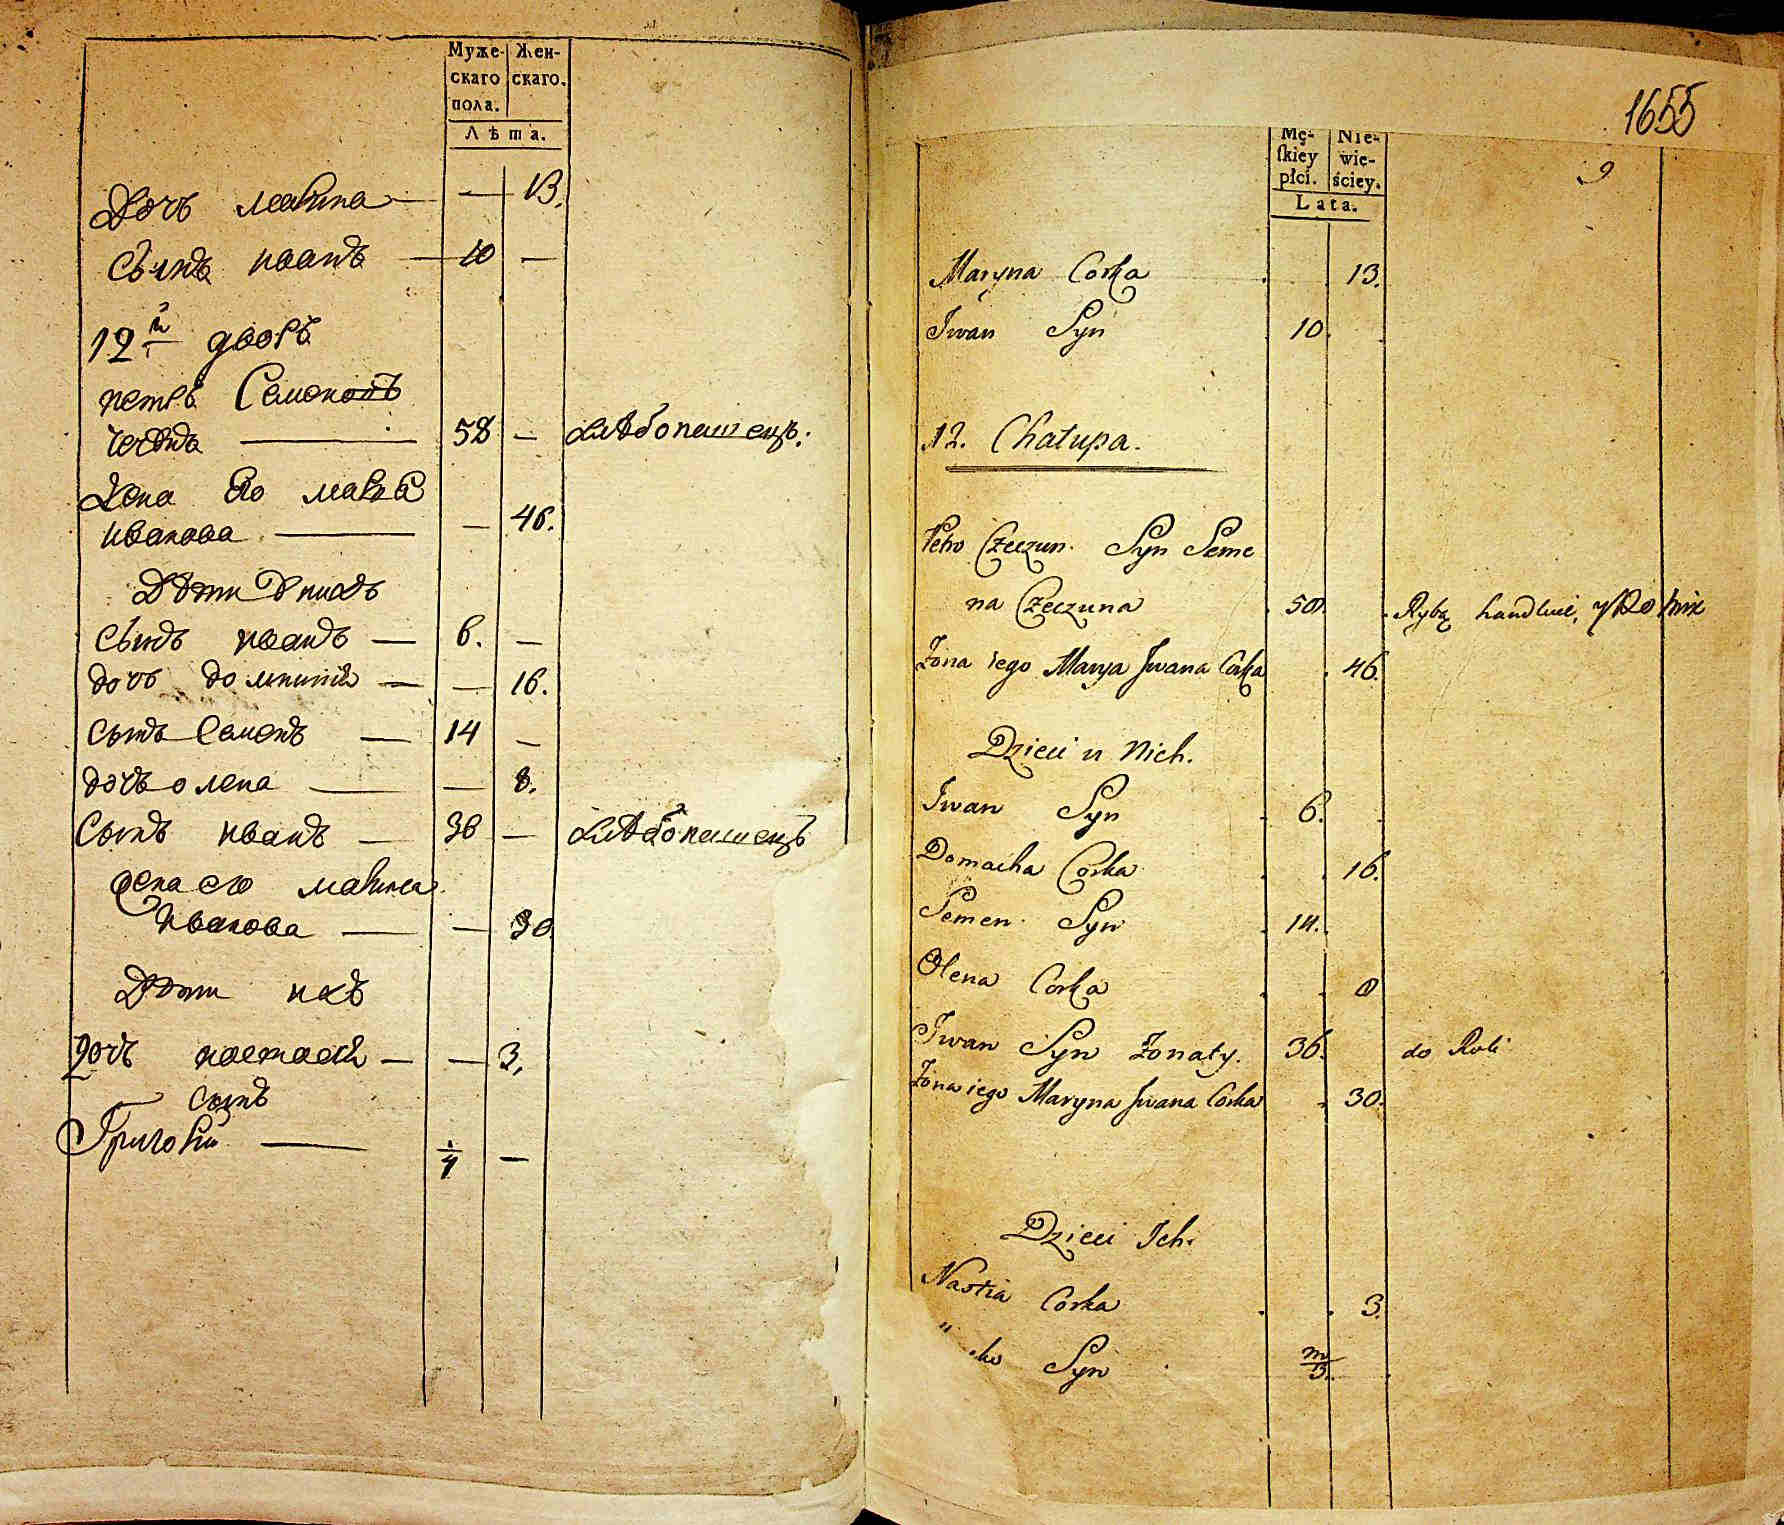 Муже-
скаго
пола.
Жен-
скаго.
Лѣта.
Дочь марина — — 13.
Сынъ иванъ — 10 —
12й дворъ
петръ Семеновъ
чечунъ — 58 — хлѣбопашецъ.
Жена Его маря
иванова — — 46.
Дѣти У нихъ
Сынъ иванъ — 6. —
дочь домникия — — 16.
Сынъ Семенъ — 14 —
дочь олена — — 8.
Сынъ иванъ — 36 — хлѣбопашецъ
жена его марина
иванова — — 30.
Дѣти ихъ
дочь настасия — — 3.
Сынъ
Григори — 1/4 —
1655
9
Mę-
ſkiey
płci.
Nie-
wie-
ściey.
Lata.
Maryna Corka 13.
Iwan Syn 10.
12. Chałupa.
Petro Czeczun. Syn Seme
na Czeczuna 58. Rybą handluie, y Rolnik
Żona iego Marya Iwana Corka 46.
Dzieci u Nich.
Iwan Syn 6.
Domacha Corka 16.
Semen Syn 14.
Olena Corka 8
Iwan Syn Żonaty. 36. do Roli
Żona iego Maryna Iwana Corka 30.
Dzieci Ich.
Nastia Corka 3.
Syn m/3.